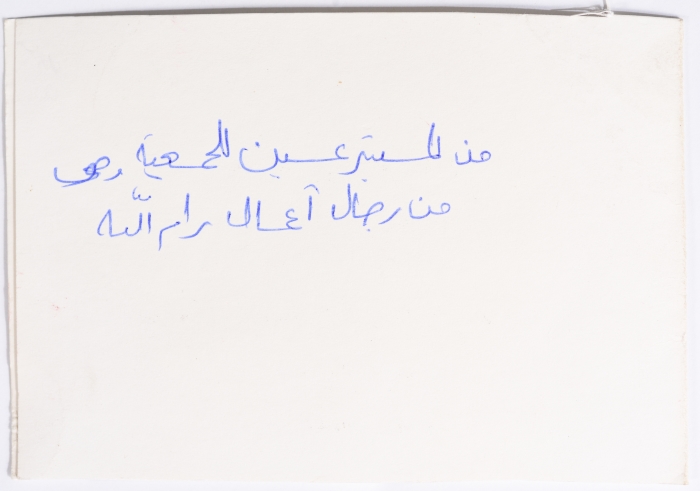 من المتبرعين للجمعية وهو
من رجال أعمال رام الله